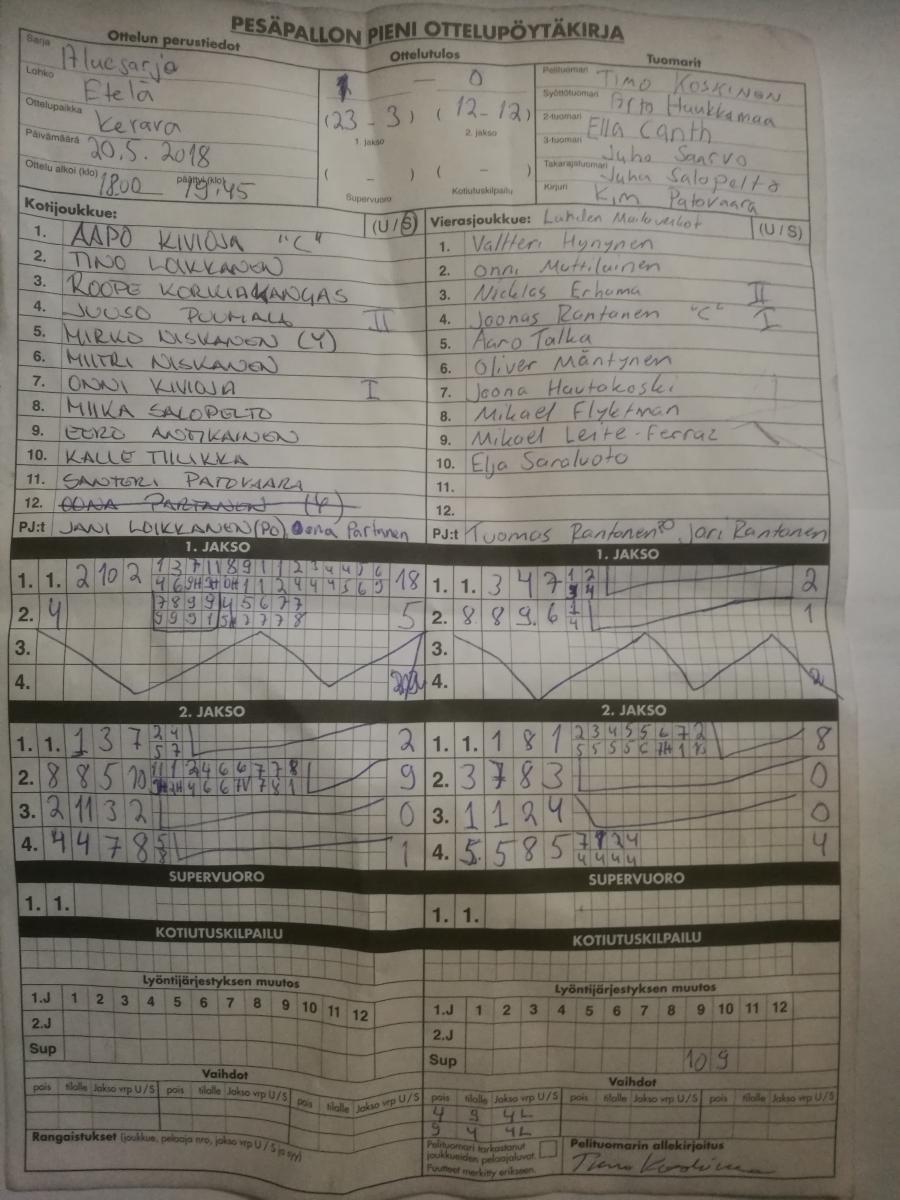 PESÄPALLON PIENI OTTELUPÖYTÄKIRJA
Ottelun perustiedot
Sarja Aluesarja
Lohko Etelä
Ottelupaikka Kerava
Päivämäärä 20.5.2018
Ottelu alkoi (klo) 18:00 päättyi (klo) 19:45
Ottelutulos
1 – 0
(23 – 3) (12 – 12)
1. jakso 2. jakso
( – ) ( – )
Supervuoro Kotiutuskilpailu
Tuomarit
Pelituomari TIMO KOSKINEN
Syöttötuomari Arto Huukkamaa
2-tuomari Ella Canth
3-tuomari Juho Saarvo
Takarajatuomari Juha Salopelto
Kirjuri Kim Patovaara
Kotijoukkue: (U/S)
1. AAPO KIVIOJA "C"
2. TINO LOIKKANEN
3. ROOPE KORKIAKANGAS
4. JUUSO PUUMALA II
5. MIRKO NISKANEN (Y)
6. MIITRI NISKANEN
7. ONNI KIVIOJA I
8. MIIKA SALOPELTO
9. EERO ANTIKAINEN
10. KALLE TIILIKKA
11. SANTERI PATOVAARA
12. OONA PARTANEN (Y)
PJ:t JANI LOIKKANEN (PO), Oona Partanen
Vierasjoukkue: Lahden Mailaveikot (U/S)
1. Valtteri Hynynen
2. Onni Muttilainen
3. Nicklas Erhama II
4. Joonas Rantanen "C" I
5. Aaro Talka
6. Oliver Mäntynen
7. Joona Hautakoski
8. Mikael Flyktman
9. Mikael Leite-Ferraz
10. Elja Saraluoto
11.
12.
PJ:t Tuomas Rantanen PO Jari Rantanen
1. JAKSO
1. 1. 2 10 2 18
2. 4 5
3.
4.
1. JAKSO
1. 1. 3 4 7 2
2. 8 8 9 6 1
3.
4.
2. JAKSO
1. 1. 1 3 7 2
2. 8 8 5 10 9
3. 2 11 3 2 0
4. 4 4 7 8 1
2. JAKSO
1. 1. 1 8 1 8
2. 3 7 8 3 0
3. 1 1 2 4 0
4. 5 5 8 5 4
SUPERVUORO
1. 1.
SUPERVUORO
1. 1.
KOTIUTUSKILPAILU
KOTIUTUSKILPAILU
Lyöntijärjestyksen muutos
1.J 1 2 3 4 5 6 7 8 9 10 11 12
2.J
Sup
Lyöntijärjestyksen muutos
1.J 1 2 3 4 5 6 7 8 9 10 11 12
2.J
Sup 10 9
Vaihdot
pois tilalle Jakso vrp U/S pois tilalle Jakso vrp U/S pois tilalle Jakso vrp U/S
Vaihdot
pois tilalle Jakso vrp U/S pois tilalle Jakso vrp U/S pois tilalle Jakso vrp U/S
4 9 4L
9 4 4L
Rangaistukset (joukkue, pelaaja nro, jakso vrp U/S ja syy)
Pelituomari tarkastanut joukkueiden pelaajaluvat.
Puutteet merkitty erikseen.
Pelituomarin allekirjoitus
Timo Koskinen